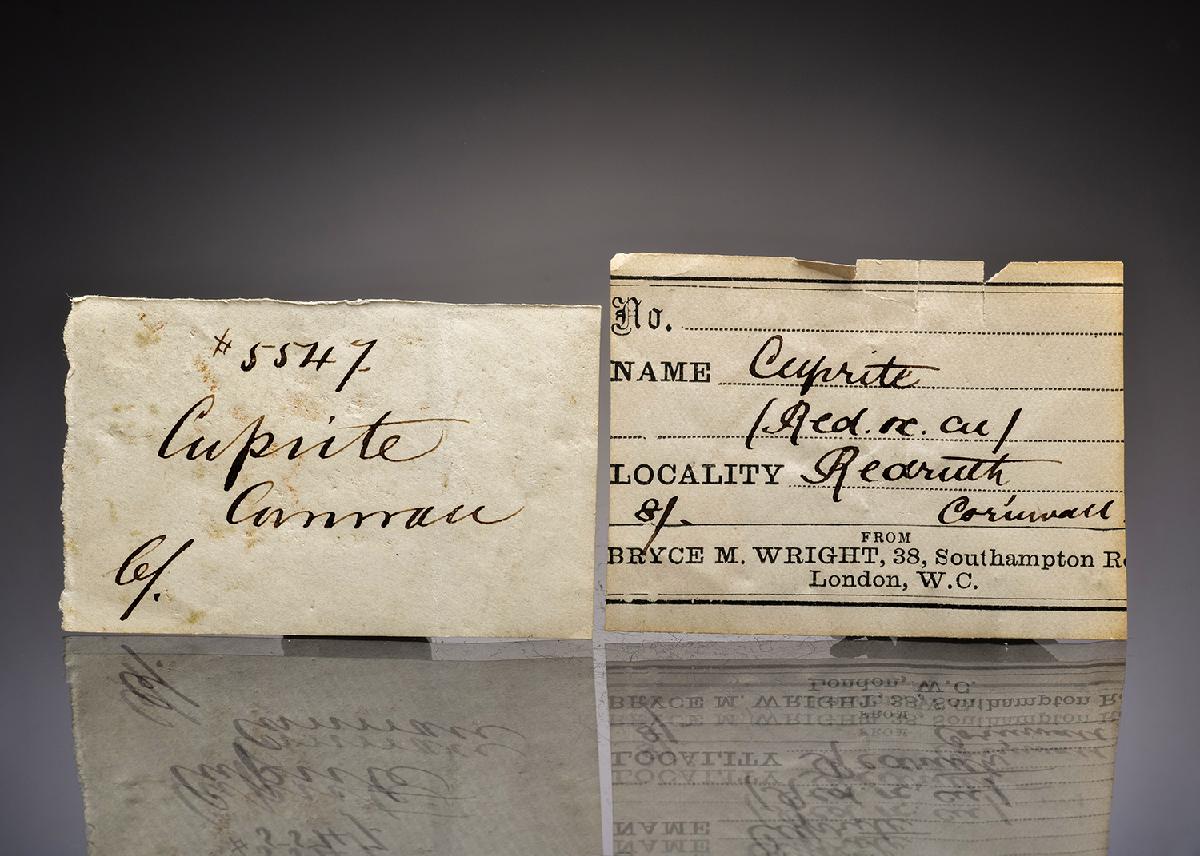 #5547
Cuprite
Cornwall
6/.
No.
NAME Cuprite
(Red. ox. cu)
LOCALITY Redruth
8/. Cornwall.
FROM
BRYCE M. WRIGHT, 38, Southampton R
London, W.C.